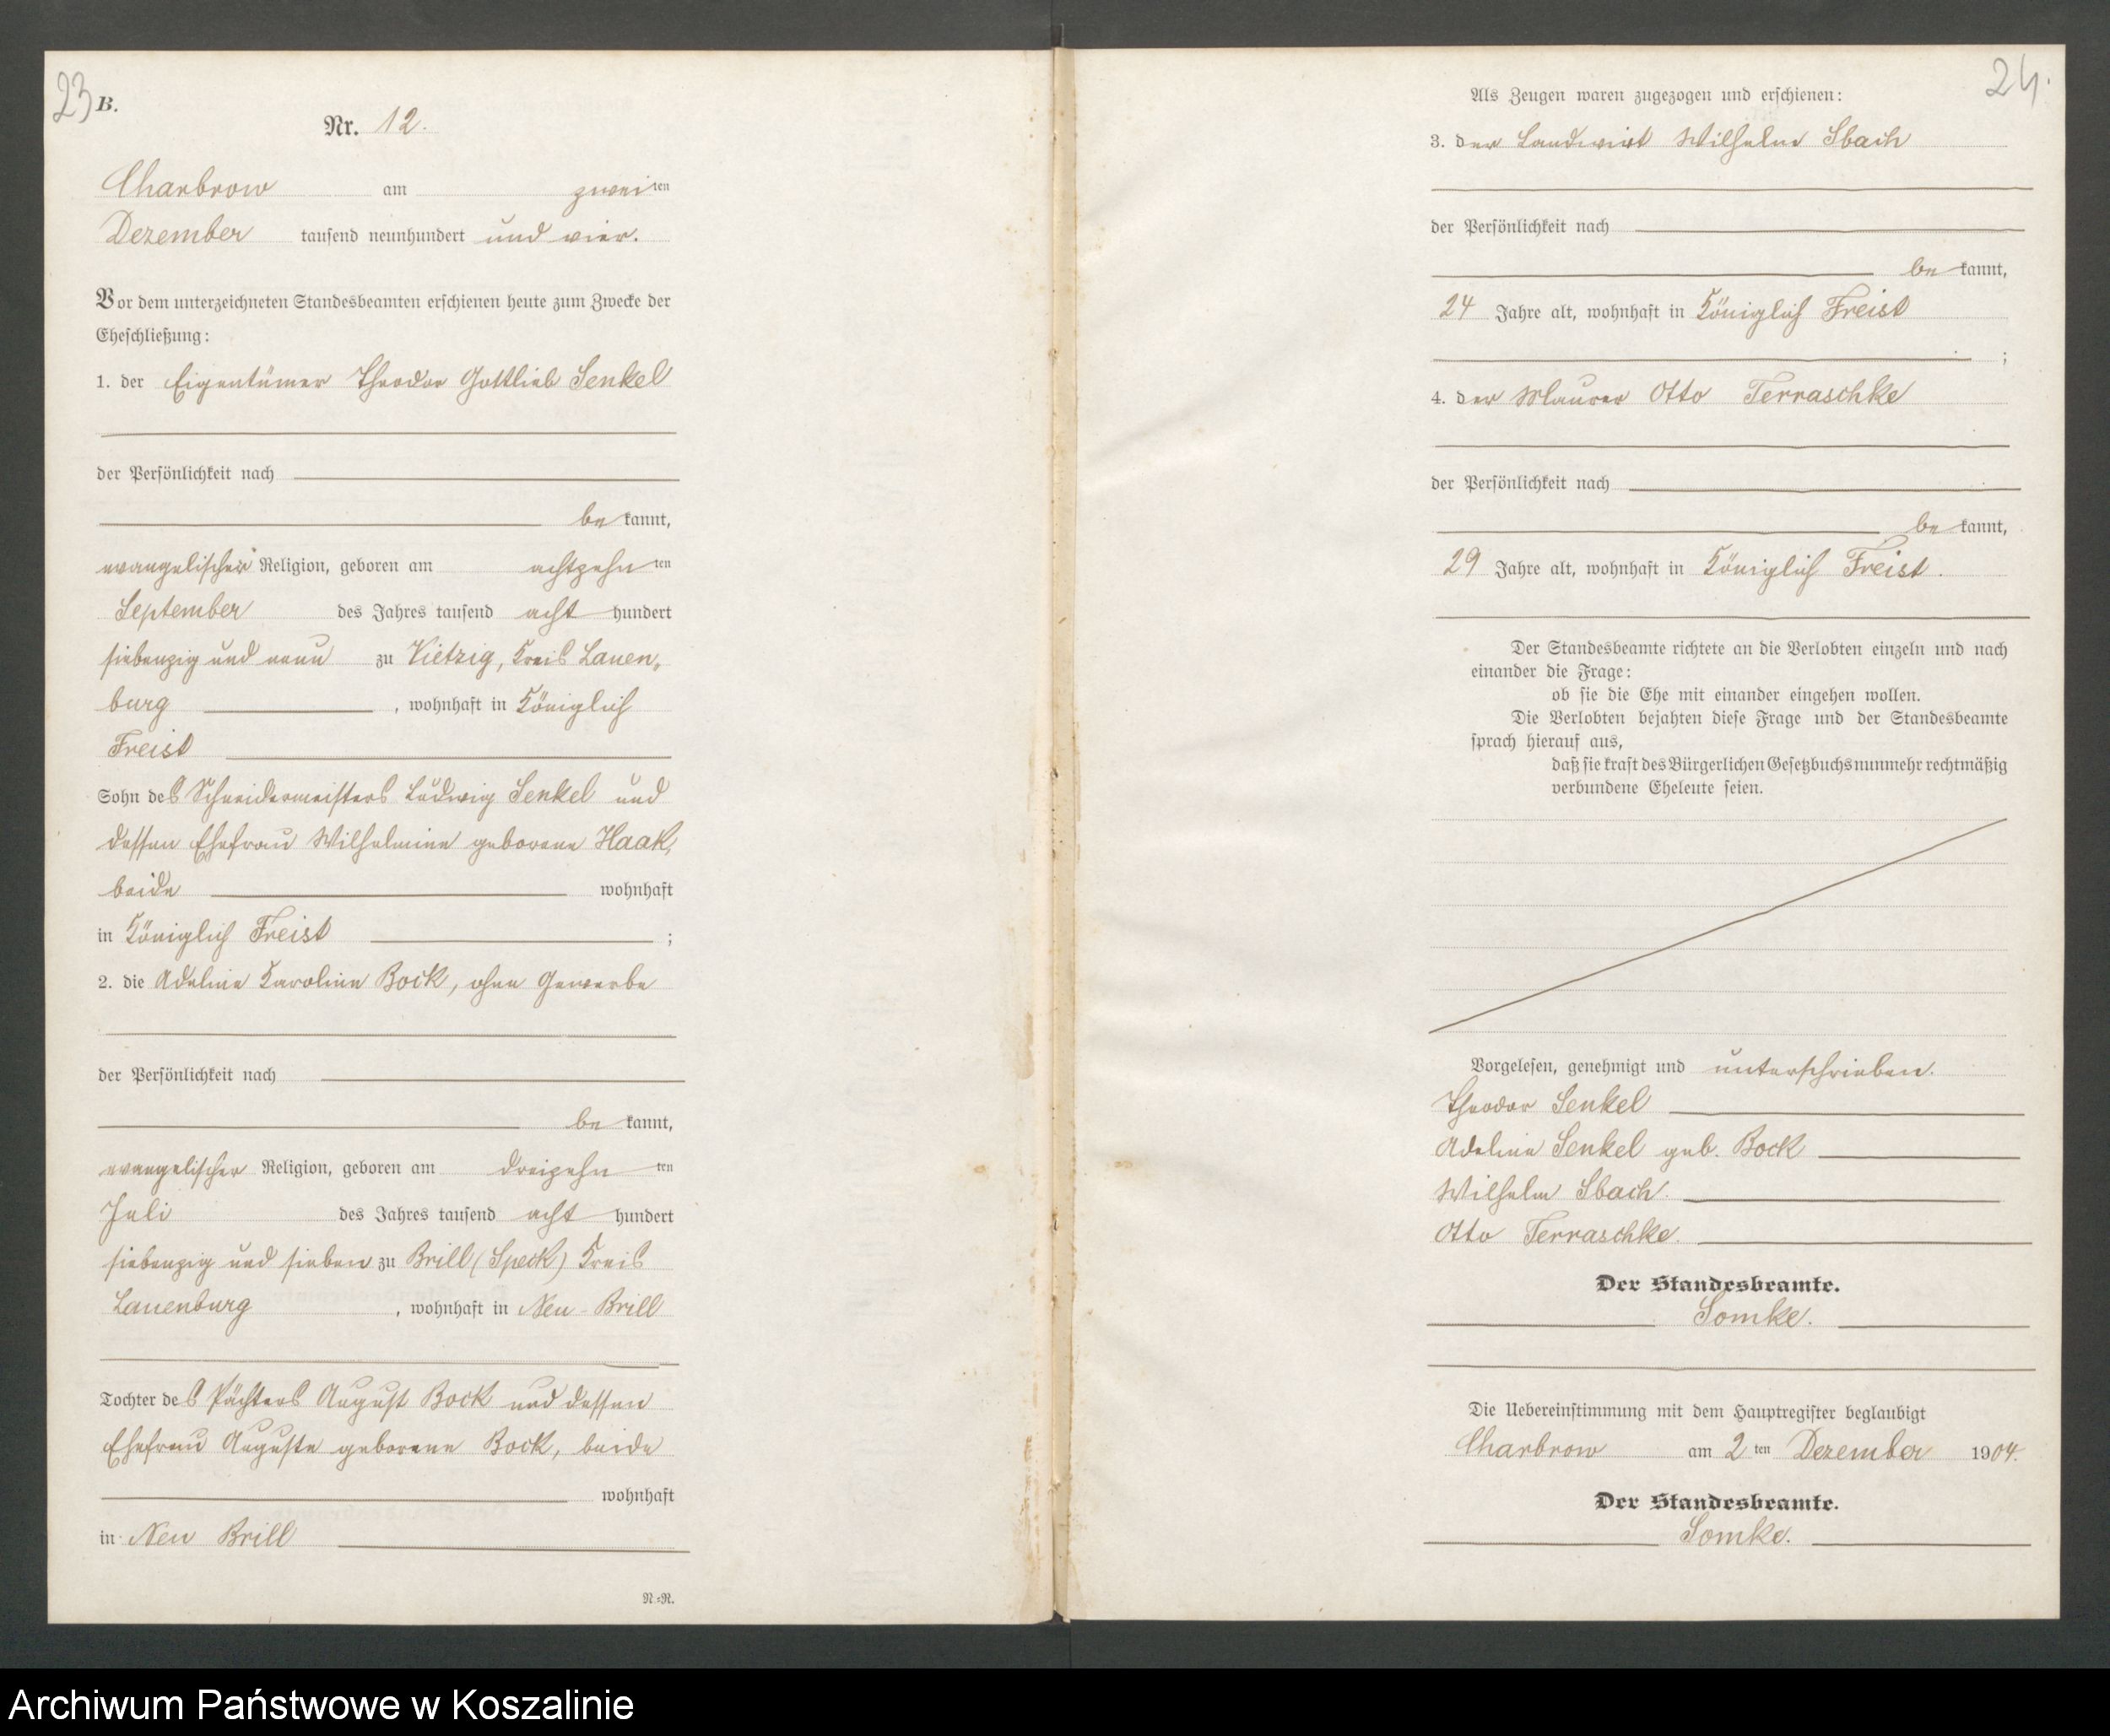 23
B.
Nr. 12.
Charbrow am zweiten
Dezember tausend neunhundert und vier.
Vor dem unterzeichneten Standesbeamten erschienen heute zum Zwecke der
Eheschließung:
1. der Eigentümer Theodor Gottlieb Senkel
der Persönlichkeit nach
be kannt,
evangelischer Religion, geboren am achtzehn ten
September des Jahres tausend acht hundert
siebenzig und neun zu Vietzig, Kreis Lauen-
burg , wohnhaft in Königlich
Freist
Sohn des Schneidermeisters Ludwig Senkel und
dessen Ehefrau Wilhelmine geborene Haak,
beide wohnhaft
in Königlich Freist ;
2. die Adeline Karoline Bock, ohne Gewerbe
der Persönlichkeit nach
be kannt,
evangelischer Religion, geboren am dreizehn ten
Juli des Jahres tausend acht hundert
siebenzig und sieben zu Brill (Speck) Kreis
Lauenburg , wohnhaft in Neu-Brill
Tochter des Pächters August Bock und dessen
Ehefrau Auguste geborene Bock, beide
wohnhaft
in Neu Brill
N.=N.
24.
Als Zeugen waren zugezogen und erschienen:
3. der Landwirt Wilhelm Sbach
der Persönlichkeit nach
be kannt,
24 Jahre alt, wohnhaft in Königlich Freist
;
4. der Maurer Otto Terraschke
der Persönlichkeit nach
be kannt,
29 Jahre alt, wohnhaft in Königlich Freist.
Der Standesbeamte richtete an die Verlobten einzeln und nach
einander die Frage:
ob sie die Ehe mit einander eingehen wollen.
Die Verlobten bejahten diese Frage und der Standesbeamte
sprach hierauf aus,
daß sie kraft des Bürgerlichen Gesetzbuchs nunmehr rechtmäßig
verbundene Eheleute seien.
Vorgelesen, genehmigt und unterschrieben.
Theodor Senkel
Adeline Senkel geb. Bock
Wilhelm Sbach.
Otto Terraschke.
Der Standesbeamte.
Somke.
Die Uebereinstimmung mit dem Hauptregister beglaubigt
Charbrow am 2 ten Dezember 1904.
Der Standesbeamte.
Somke.
Archiwum Państwowe w Koszalinie